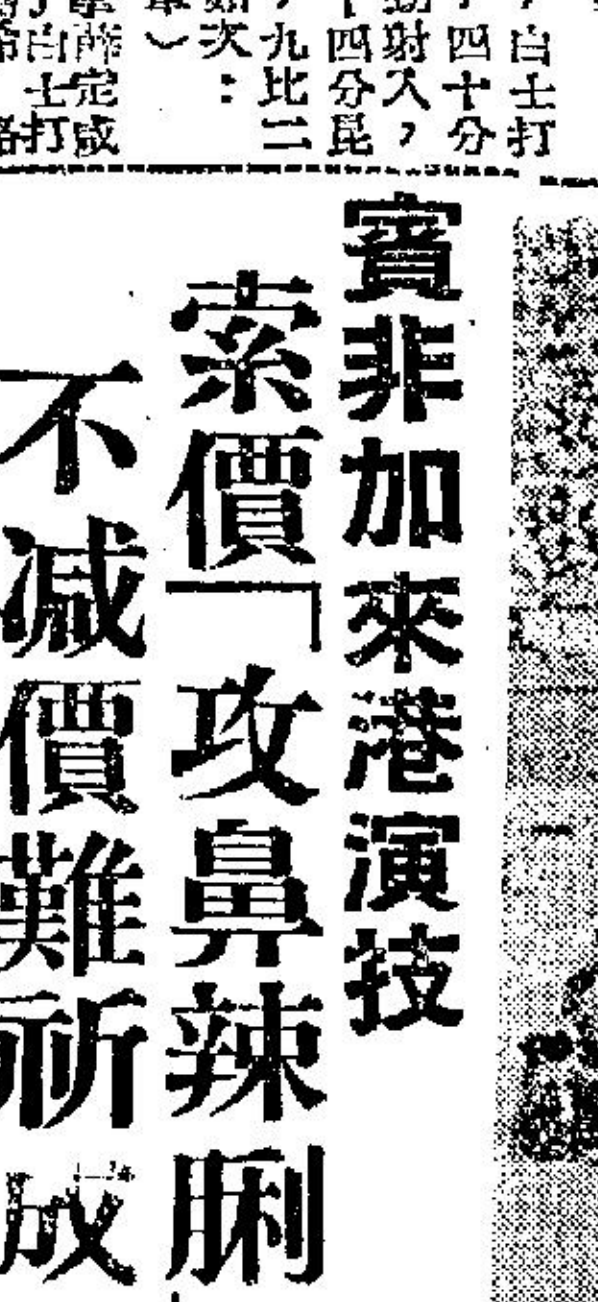 白士打
四十分
射入，
十四分昆
，九比二
如次：
）
薛定
白士打
賓非加來港演技
索價「攻鼻辣脷
不減價難祈成